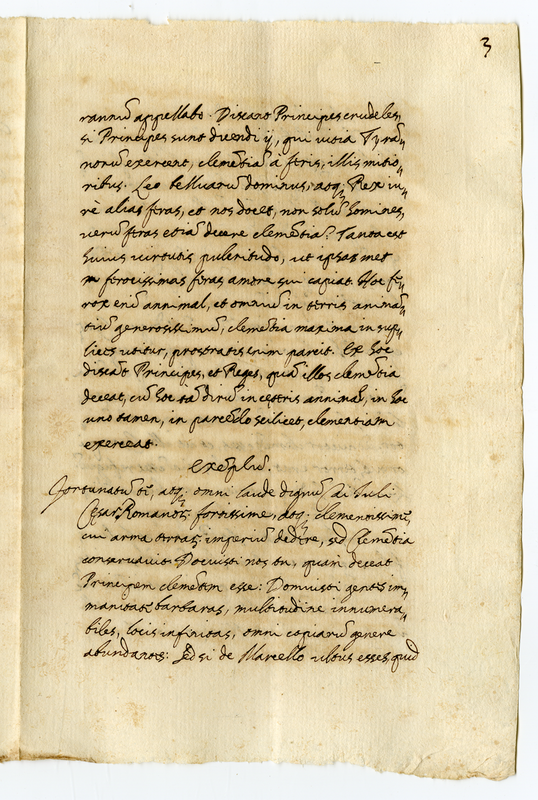 3
rannũ appellabo. Discant Principes crudeles,
si Principes sunt dicendi ij, qui vitia Tyrã
norũ exercent, clemẽtiã a feris, illis mitio
ribus. Leo belluarũ dominus, atq; Rex in
rè alias feras, et nos docet, non solũ homines,
verũ feras etiã decere clemẽtia? Tanta est
huius virtutis pulcritudo, ut ipsas met
ferocissimas feras amore sui capiat. Hoc fe
rox enĩ annimal, et omniũ in terris animã
tiũ generosissimũ, clemẽtia maxima in sup
lices utitur, prostratis enim parcit. Ex hoc
discãt Principes, et Reges, quã illos clemẽtia
deceat, cũ hoc tã dirũ in cęteris annimal, in hoc
uno tamen, in parcẽdo scilicet, clementiam
exerceat.
Exẽplũ.
Fortunatũ tẽ, atq; omni laude dignũ Juli
Cęsar Romanor. fortissime, atq; clementissime,
cui arma terrar. imperiũ dedere, sed Clemẽtia
conservavit. Docuisti nos tu, quàm deceat
Principem clemẽtem esse: Domuisti gentes im
manitate barbaras, multitudine innumera
biles, locis infinitas, omni copiarũ genere
abundantes: Sed si de Marcello ultus esses, quid